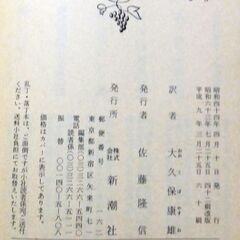 昭和四十四年四月十日 発行
昭和六十三年七月二十五日 四十刷改版
平成九年三月三十日 五十一刷
訳者 大久保康雄
発行者 佐藤隆信
発行所 株式会社 新潮社
郵便番号 一六二
東京都新宿区矢来町七一
電話 編集部(〇三)三二六六-五四
読者係(〇三)三二六六-五一一一
振替 〇〇一四〇-五-八〇八
価格はカバーに表示してあります。
乱丁・落丁本は、ご面倒ですが小社読者係宛ご送付
ください。送料小社負担にてお取替えいたします。